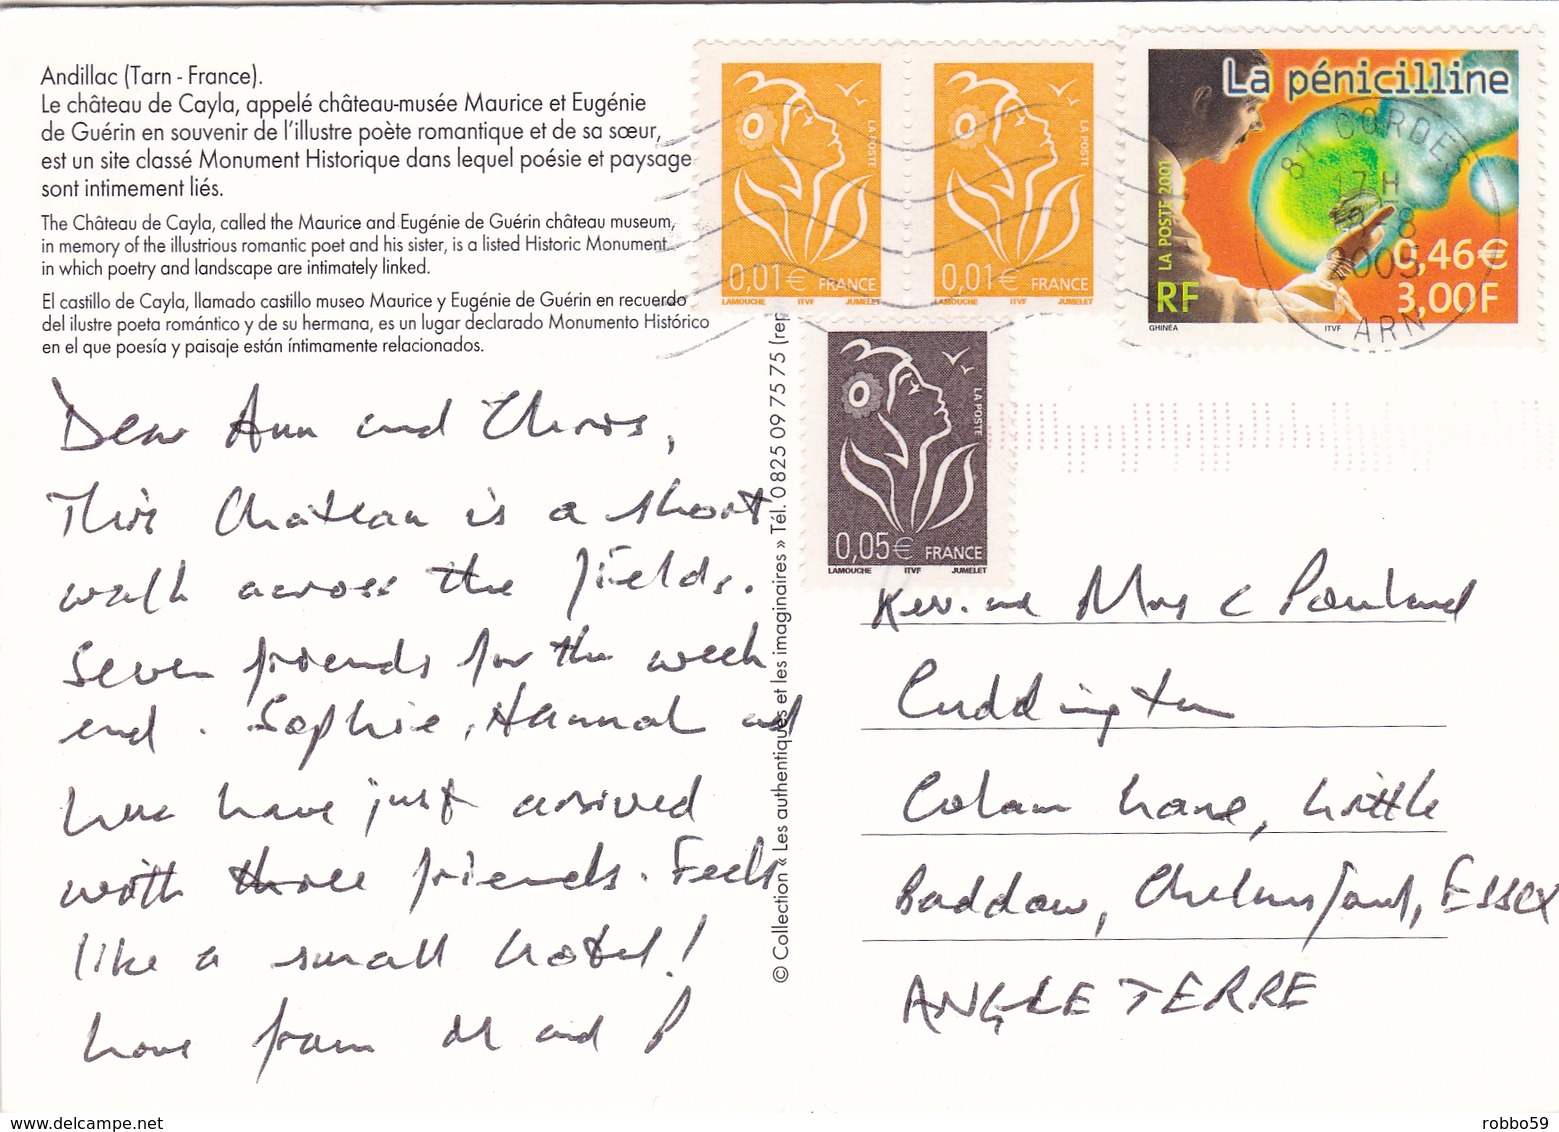 Andillac (Tarn - France).
Le château de Cayla, appelé château-musée Maurice et Eugénie
de Guérin en souvenir de l'illustre poète romantique et de sa sœur,
est un site classé Monument Historique dans lequel poésie et paysage
sont intimement liés.
The Château de Cayla, called the Maurice and Eugénie de Guérin château museum,
in memory of the illustrious romantic poet and his sister, is a listed Historic Monument
in which poetry and landscape are intimately linked.
El castillo de Cayla, llamado castillo museo Maurice y Eugénie de Guérin en recuerdo
del ilustre poeta romántico y de su hermana, es un lugar declarado Monumento Histórico
en el que poesía y paisaje están íntimamente relacionados.
Dear Ann and Chris,
This Chateau is a short
walk across the fields.
Seven friends for the week
end. Sophie, Hannah and
have just arrived
with three friends. Feels
like a small hotel!
Love from M and P
© Collection « Les authentiques et les imaginaires » Tél. 0 825 09 75 75 (rep
LA POSTE
0,01€ FRANCE
LAMOUCHE ITVF JUMELET
LA POSTE
0,01€ FRANCE
LAMOUCHE ITVF JUMELET
La pénicilline
LA POSTE 2001
RF
0,46€
3,00F
GHINÉA ITVF
81 CORDES
17 H
8
2005
TARN
LA POSTE
0,05€ FRANCE
LAMOUCHE ITVF JUMELET
Rev. and Mrs C
Cuddington
Colam Lane, Little
Baddow, Chelmsford, Essex
ANGLETERRE
robbo59